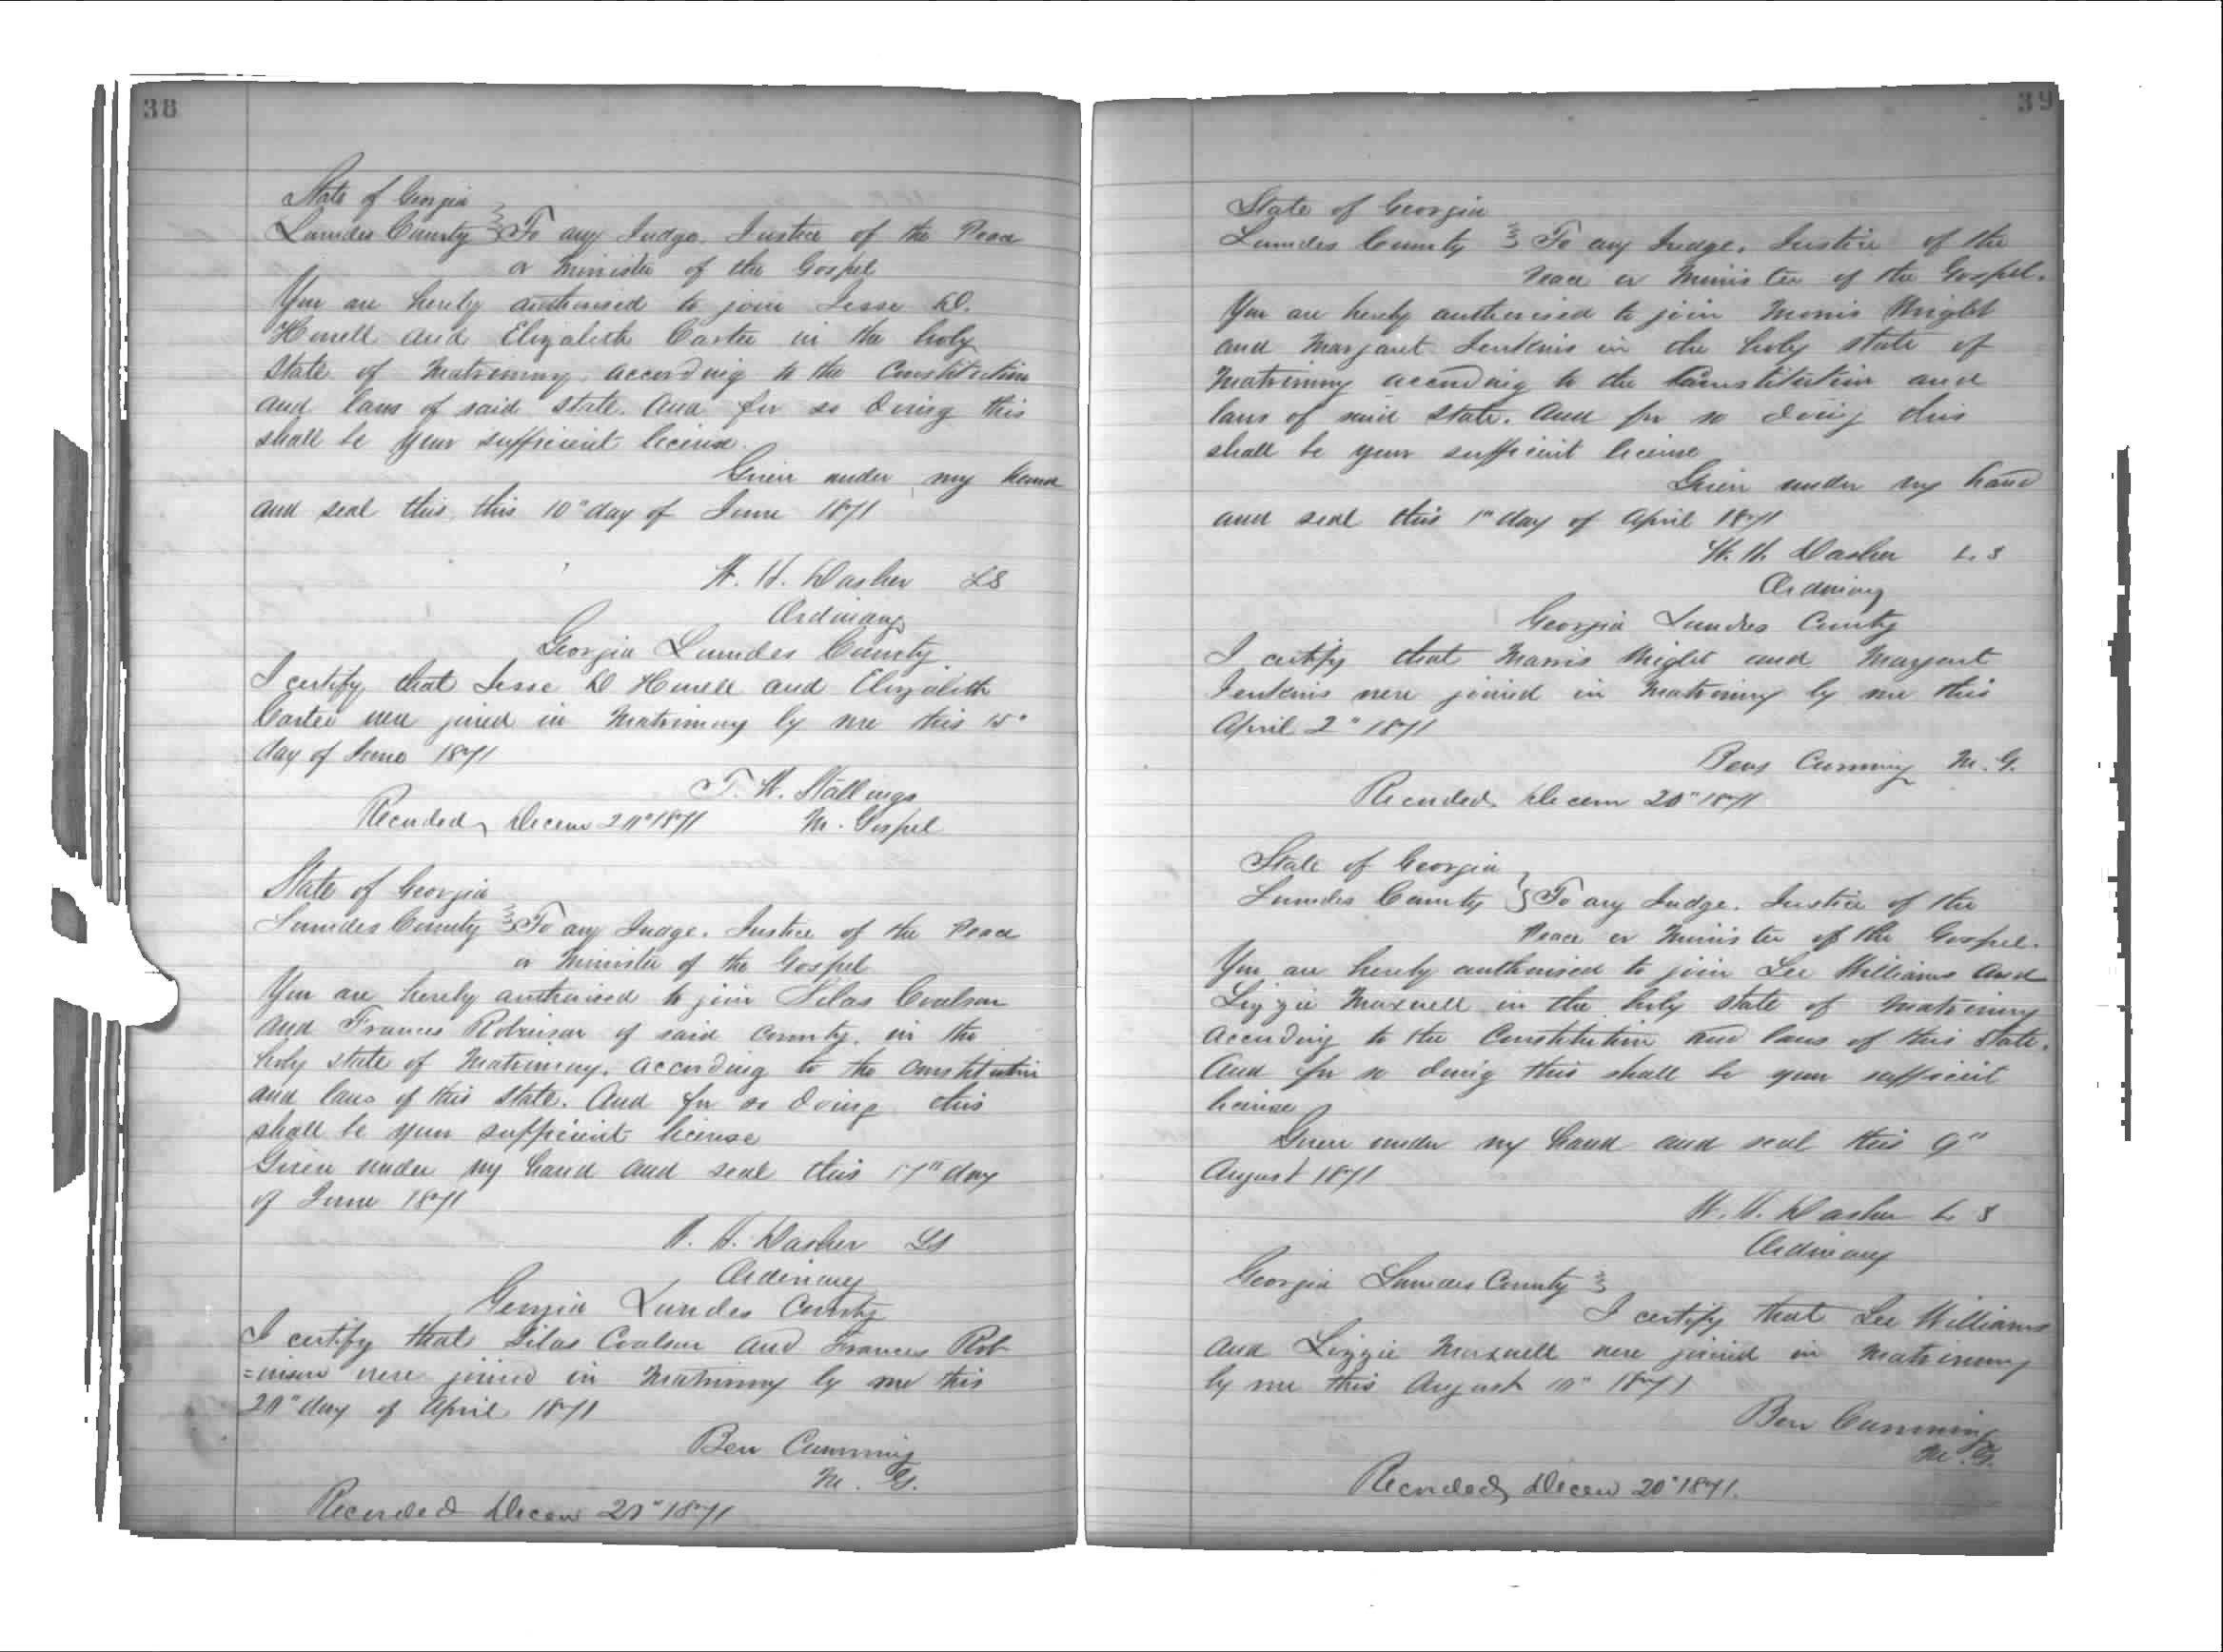 38
State of Georgia
Lowndes County } To any Judge. Justice of the Peace
or Minister of the Gospel
You are hereby authorised to join Jesse D.
Howell and Elizabeth Carter in the holy
state of Matrimony according to the Constitution
and laws of said State. And for so doing this
shall be your sufficient license.
Given under my hand
and seal this, this 10" day of June 1871
W. H. Dasher LS
Ordinary
Georgia Lowndes County
I certify that Jesse D Howell and Elizabeth
Carter were joined in Matrimony by me this 15"
day of June 1871
T. W. Stallings
Recorded Decem 20" 1871 M. Gospel
State of Georgia
Lowndes County } To any Judge. Justice of the Peace
or Minister of the Gospel
You are hereby authorised to join Silas Coalson
and Frances Robinson of said County. in the
holy state of Matrimony. according to the Constitution
and laws of this State. And for so doing this
shall be your sufficient license
Given under my hand and seal this 17" day
of June 1871
W. H. Dasher LS
Ordinary
Georgia Lowndes County
I certify that Silas Coalson and Frances Rob-
=inson were joined in Matrimony by me this
20" day of April 1871
Ben Cumming
M. G.
Recorded Decem 20" 1871
39
State of Georgia
Lowndes County } To any Judge. Justice of the
Peace or Minister of the Gospel.
You are hereby authorised to join Morris Wright
and Margaret Jenkins in the holy state of
Matrimony according to the Constitution and
laws of said State. And for so doing this
shall be your sufficient license
Given under my hand
and seal this 1" day of April 1871
W. H. Dasher L. S
Ordinary
Georgia Lowndes County
I certify that Morris Wright and Margaret
Jenkins were joined in Matrimony by me this
April 2" 1871
Cumming M. G.
Recorded Decem 20" 1871
State of Georgia
Lowndes County } To any Judge. Justice of the
Peace or Minister of the Gospel.
You are hereby authorised to join Lee Williams and
Lizzie Maxwell in the holy state of Matrimony
according to the Constitution and laws of this State.
And for so doing this shall be your sufficient
license
Given under my hand and seal this 9"
August 1871
W. H. Dasher L. S
Ordinary
Georgia Lowndes County }
I certify that Lee Williams
and Lizzie Maxwell were joined in Matrimony
by me this August 10" 1871
Ben Cumming
M. G.
Recorded Decem 20" 1871.